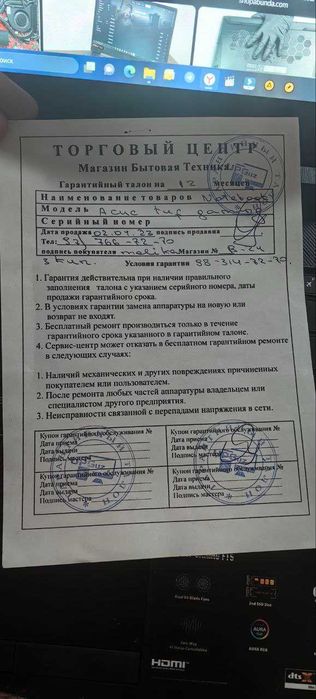 shopabunda.com
ПОИСК
ТОРГОВЫЙ ЦЕНТР
Магазин Бытовая Техника
Гарантийный талон на 12 месяцев
Наименование товаров Notebook
Модель Асус tuf gaming
Серийный номер
Дата продажа 02.04.22 подпись продавца
Тел: 766-72-70
подпись покупателя malika Магазин № B-24
Условия гарантии
1. Гарантия действительна при наличии правильного
заполнения талона с указанием серийного номера, даты
продажи гарантийного срока.
2. В условиях гарантии замена аппаратуры на новую или
возврат не входят.
3. Бесплатный ремонт производиться только в течение
гарантийного срока указанного в гарантийном талоне.
4. Сервис-центр может отказать в бесплатном гарантийном ремонте
в следующих случаях:
1. Наличий механических и других повреждений причиненных
покупателем или пользователем.
2. После ремонта любых частей аппаратуры владельцем или
специалистом другого предприятия.
3. Неисправности связанной с перепадами напряжения в сети.
Купон гарантийного обслуживания №
Дата приема
Дата выдачи
Подпись мастера
Купон гарантийного обслуживания №
Дата приема
Дата выдачи
Подпись мастера
Купон гарантийного обслуживания №
Дата приема
Дата выдачи
Подпись мастера
Купон гарантийного обслуживания №
Дата приема
Дата выдачи
Подпись мастера
2nd SSD Slot
AURA
AURA RGB
HDMI
dts X